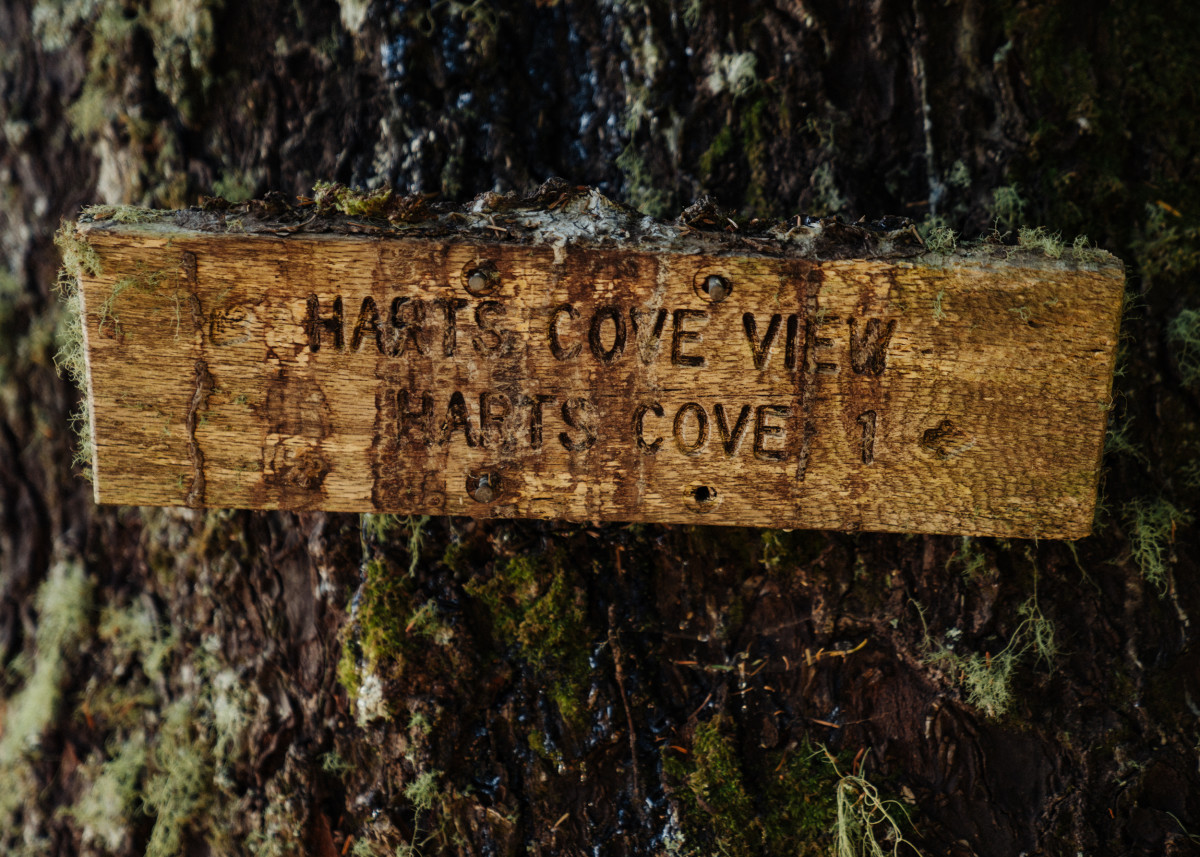 HARTS COVE VIEW
HARTS COVE 1